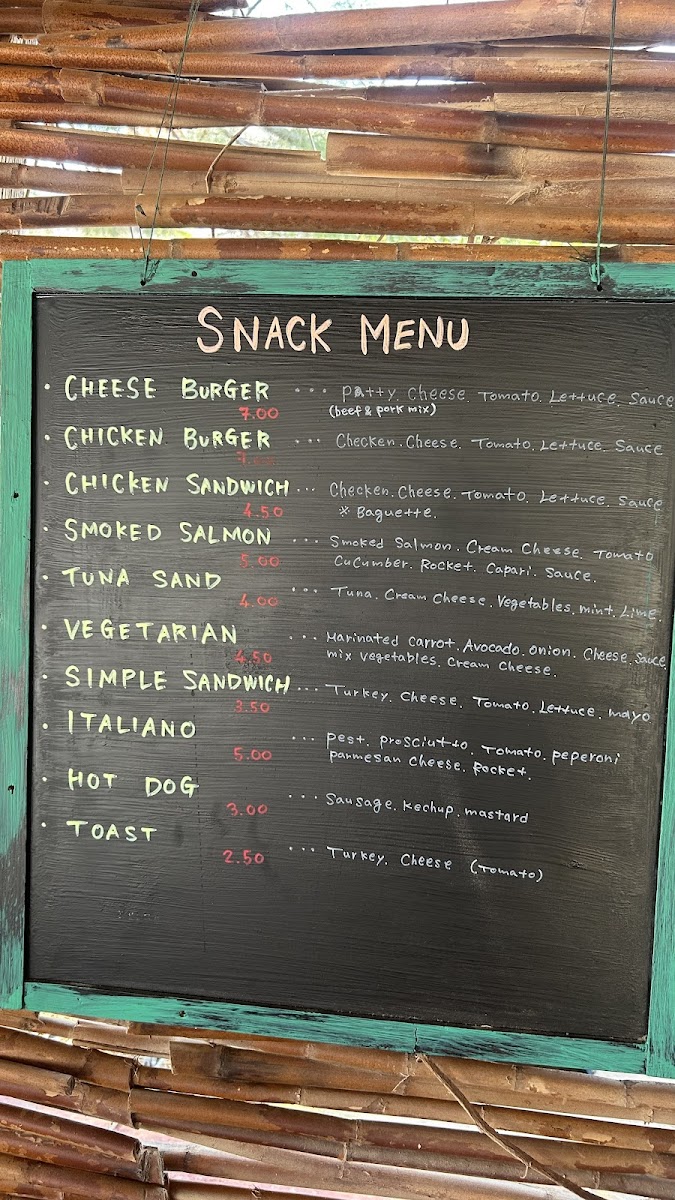 SNACK MENU
· CHEESE BURGER ... Patty. Cheese. Tomato. Lettuce. Sauce
7.00 (beef & pork mix)
· CHICKEN BURGER ... Checken. Cheese. Tomato. Lettuce. Sauce
· CHICKEN SANDWICH ... Checken. Cheese. Tomato. Lettuce. Sauce
4.50 * Baguette.
· SMOKED SALMON ... Smoked Salmon. Cream Cheese. Tomato
5.00 CuCumber. Rocket. Capari. Sauce.
· TUNA SAND ... Tuna. Cream Cheese. Vegetables. mint. Lime.
4.00
· VEGETARIAN ... Marinated Carrot. Avocado. onion. Cheese. Sauce
4.50 mix vegetables. Cream Cheese.
· SIMPLE SANDWICH ... Turkey. Cheese. Tomato. Lettuce. mayo
3.50
· ITALIANO ... pest. prosciutto. Tomato. peperoni
5.00 parmesan Cheese. Rocket.
· HOT DOG ... Sausage. Kechup. mastard
3.00
· TOAST ... Turkey. Cheese (Tomato)
2.50